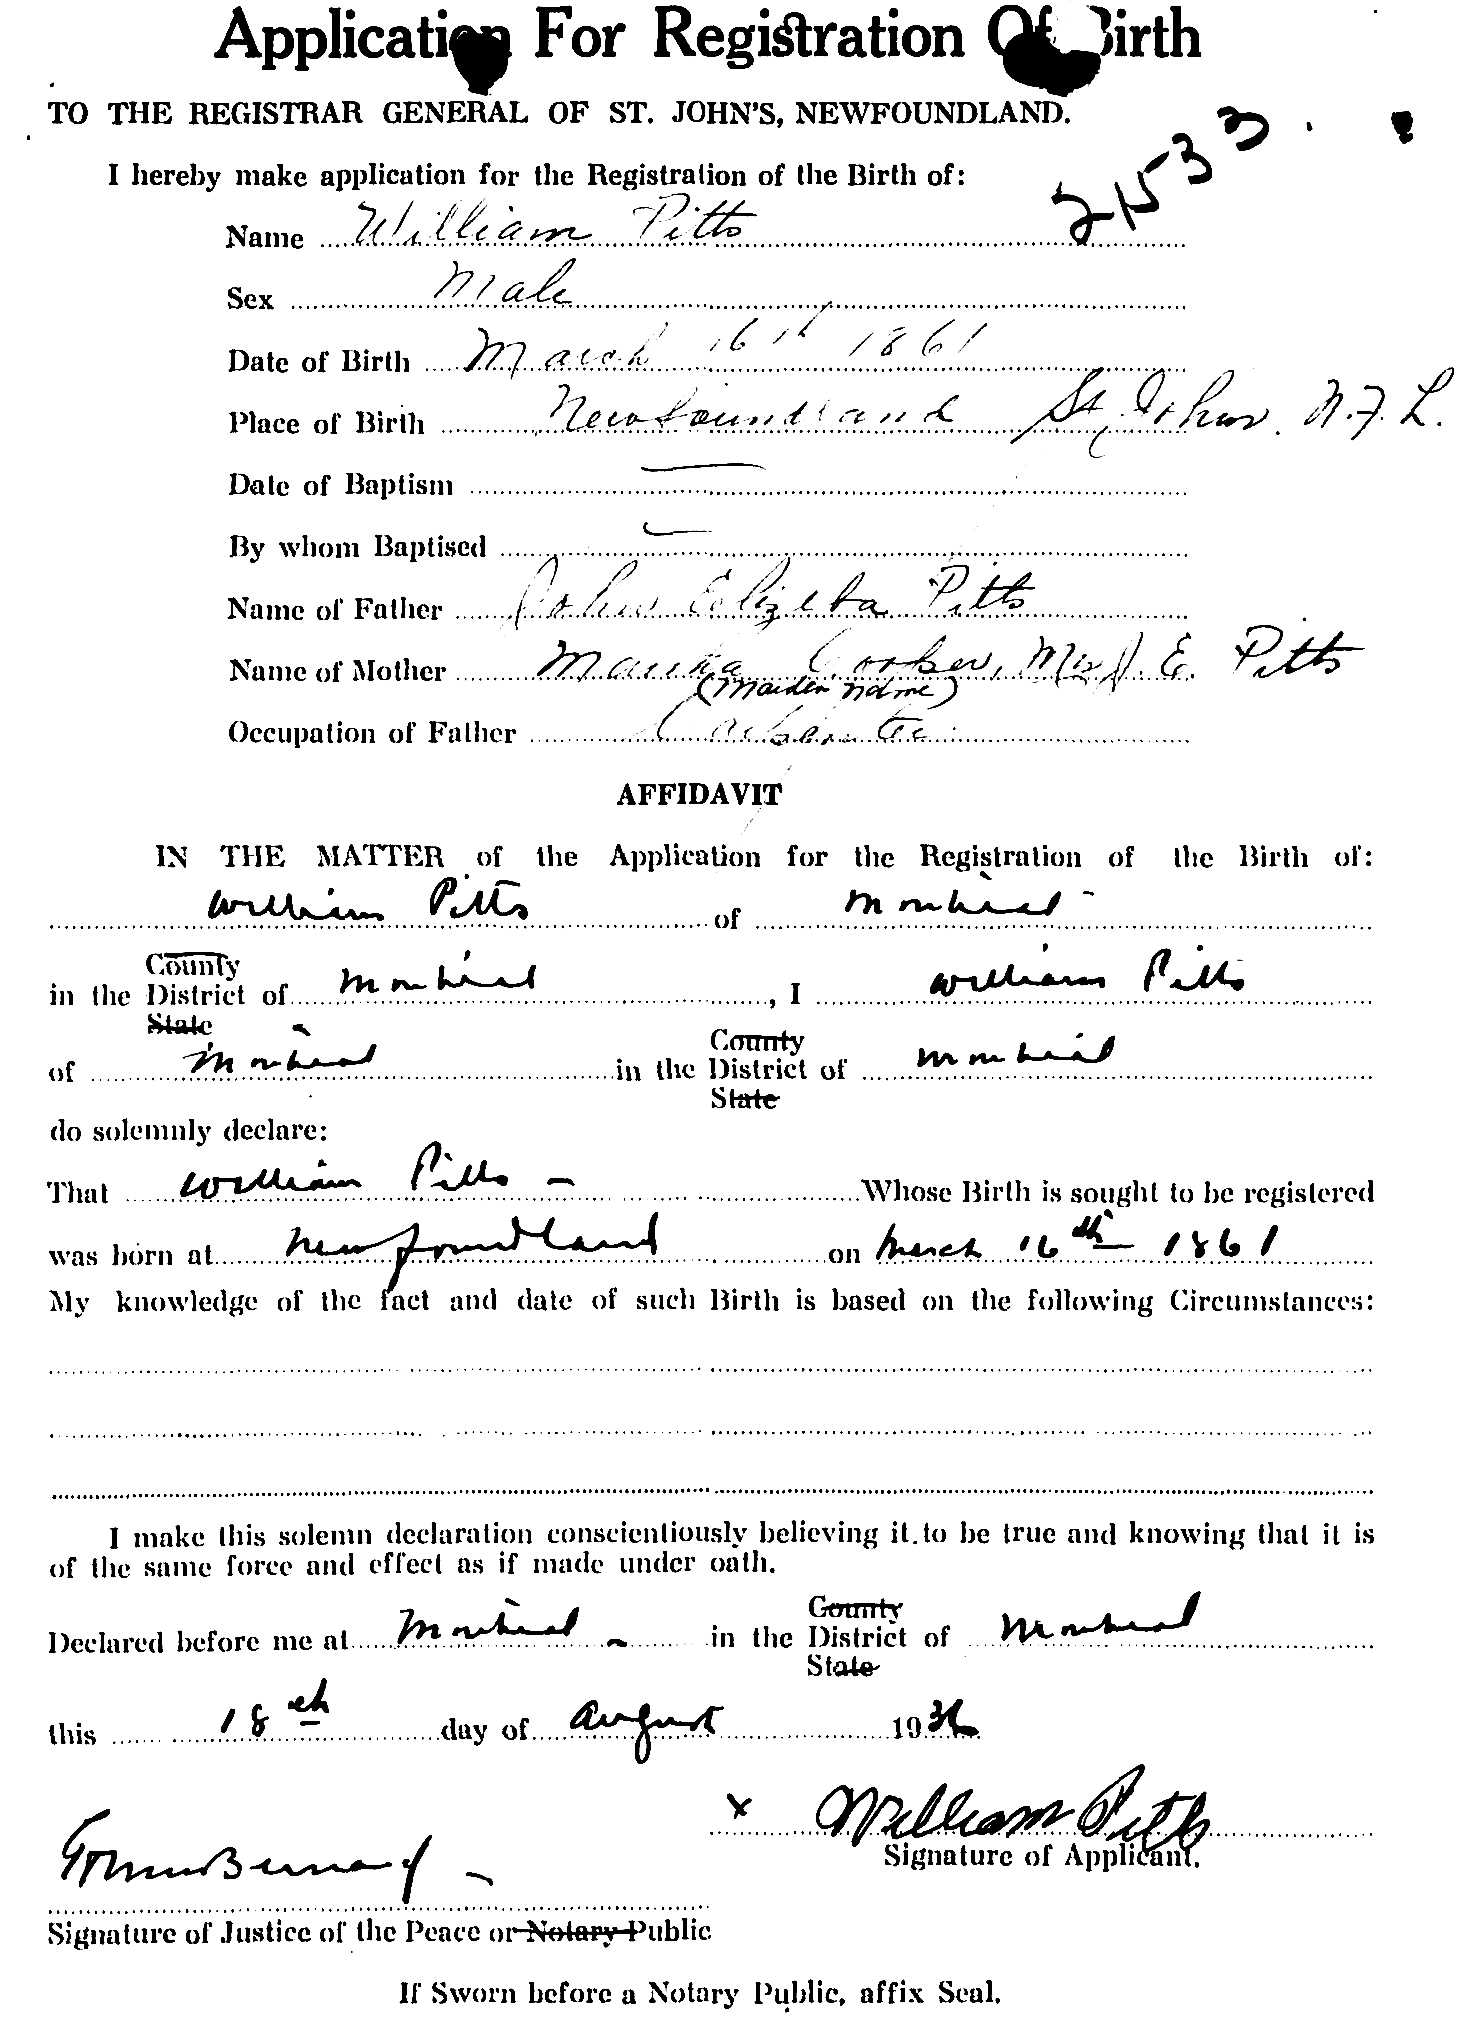 Application For Registration Of Birth
TO THE REGISTRAR GENERAL OF ST. JOHN'S, NEWFOUNDLAND.
21533
I hereby make application for the Registration of the Birth of:
Name William Pitts
Sex Male
Date of Birth March 16th 1861
Place of Birth Newfoundland St. Johns. N.F.L.
Date of Baptism —
By whom Baptised —
Name of Father John Pitts
Name of Mother Mrs J. E. Pitts
(Maiden Name)
Occupation of Father Carpenter
AFFIDAVIT
IN THE MATTER of the Application for the Registration of the Birth of:
William Pitts of Montreal
County
in the District of Montreal, I William Pitts
State
of Montreal in the District of Montreal
County
State
do solemnly declare:
That William Pitts — Whose Birth is sought to be registered
was born at Newfoundland on March 16th 1861
My knowledge of the fact and date of such Birth is based on the following Circumstances:
I make this solemn declaration conscientiously believing it to be true and knowing that it is
of the same force and effect as if made under oath.
County
Declared before me at Montreal in the District of Montreal
State
this 18th day of August 1936
x William Pitts
Signature of Applicant.
Signature of Justice of the Peace or Notary Public
If Sworn before a Notary Public, affix Seal.